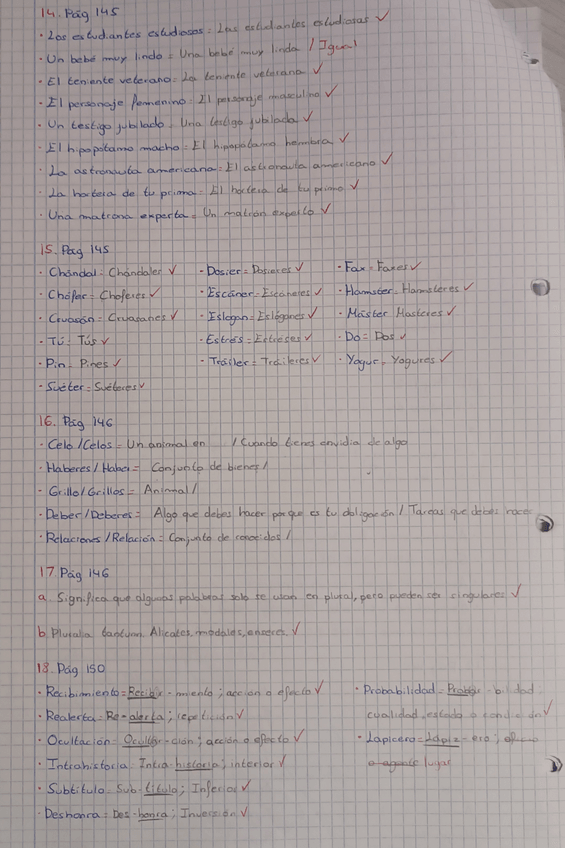 14. Pág 145
· Los estudiantes estudiosos = Las estudiantes estudiosas ✓
· Un bebé muy lindo = Una bebé muy linda / Igual
· El teniente veterano = La teniente veterana ✓
· El personaje femenino = El personaje masculino ✓
· Un testigo jubilado = Una testigo jubilada ✓
· El hipopótamo macho = El hipopótamo hembra ✓
· La astronauta americana = El astronauta americano ✓
· La hortera de tu prima = El hortera de tu primo ✓
· Una matrona experta = Un matrón experto ✓
15. Pág 145
· Chándal = Chándales ✓ · Dosier = Dosieres ✓ · Fax = Faxes ✓
· Chófer = Choferes ✓ · Escáner = Escáneres ✓ · Hamster = Hamsteres ✓
· Cruasán = Cruasanes ✓ · Eslogan = Eslóganes ✓ · Máster Másteres ✓
· Tú = Tús ✓ · Estrés = Estréses ✓ · Do = Dos ✓
· Pin = Pines ✓ · Tráiler = Tráileres ✓ · Yogur = Yogures ✓
· Suéter = Suéteres ✓
16. Pág 146
· Celo / Celos = Un animal en / Cuando tienes envidia de algo
· Haberes / Haber = Conjunto de bienes /
- Grillo / Grillos = Animal /
· Deber / Deberes = Algo que debes hacer porque es tu obligación / Tareas que debes hacer
· Relaciones / Relación = Conjunto de conocidos /
17. Pág 146
a. Significa que algunas palabras solo se usan en plural, pero pueden ser cingulares ✓
b. Pluralia tantum. Alicates, modales, enseres ✓
18. Pág 150
· Recibimiento = Recibir - miento ; acción o efecto ✓ · Probabilidad = - bilidad
· Realerta = Re-alerta ; repetición ✓ cualidad, estado o condición ✓
· Ocultación = Ocultar - ción ; acción o efecto ✓ · Lapicero = Lápiz - ero ;
· Intrahistoria = Intra-historia ; interior ✓ o agente lugar
· Subtítulo = Sub-título ; Inferior ✓
· Deshonra = Des-honra ; Inversión ✓